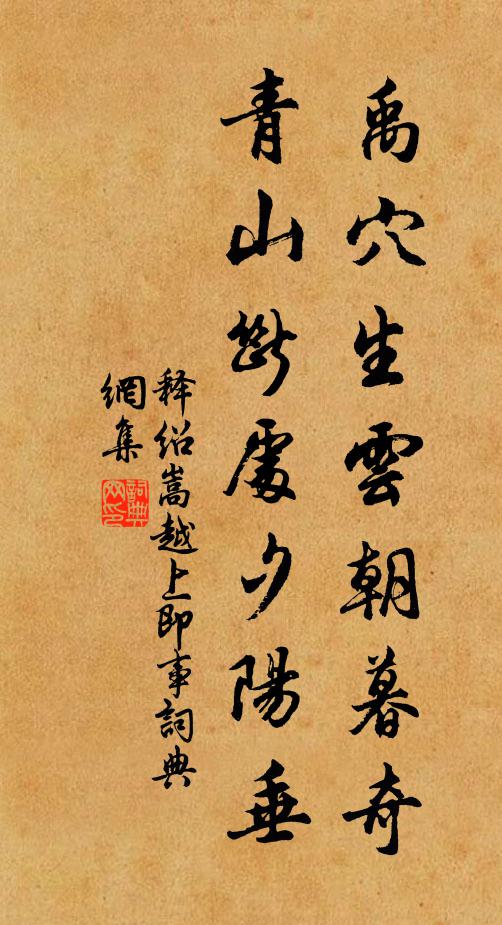 禹穴生雲朝暮奇
青山斷處夕陽垂
释绍嵩越上即事詞典
網集
詞典
网印